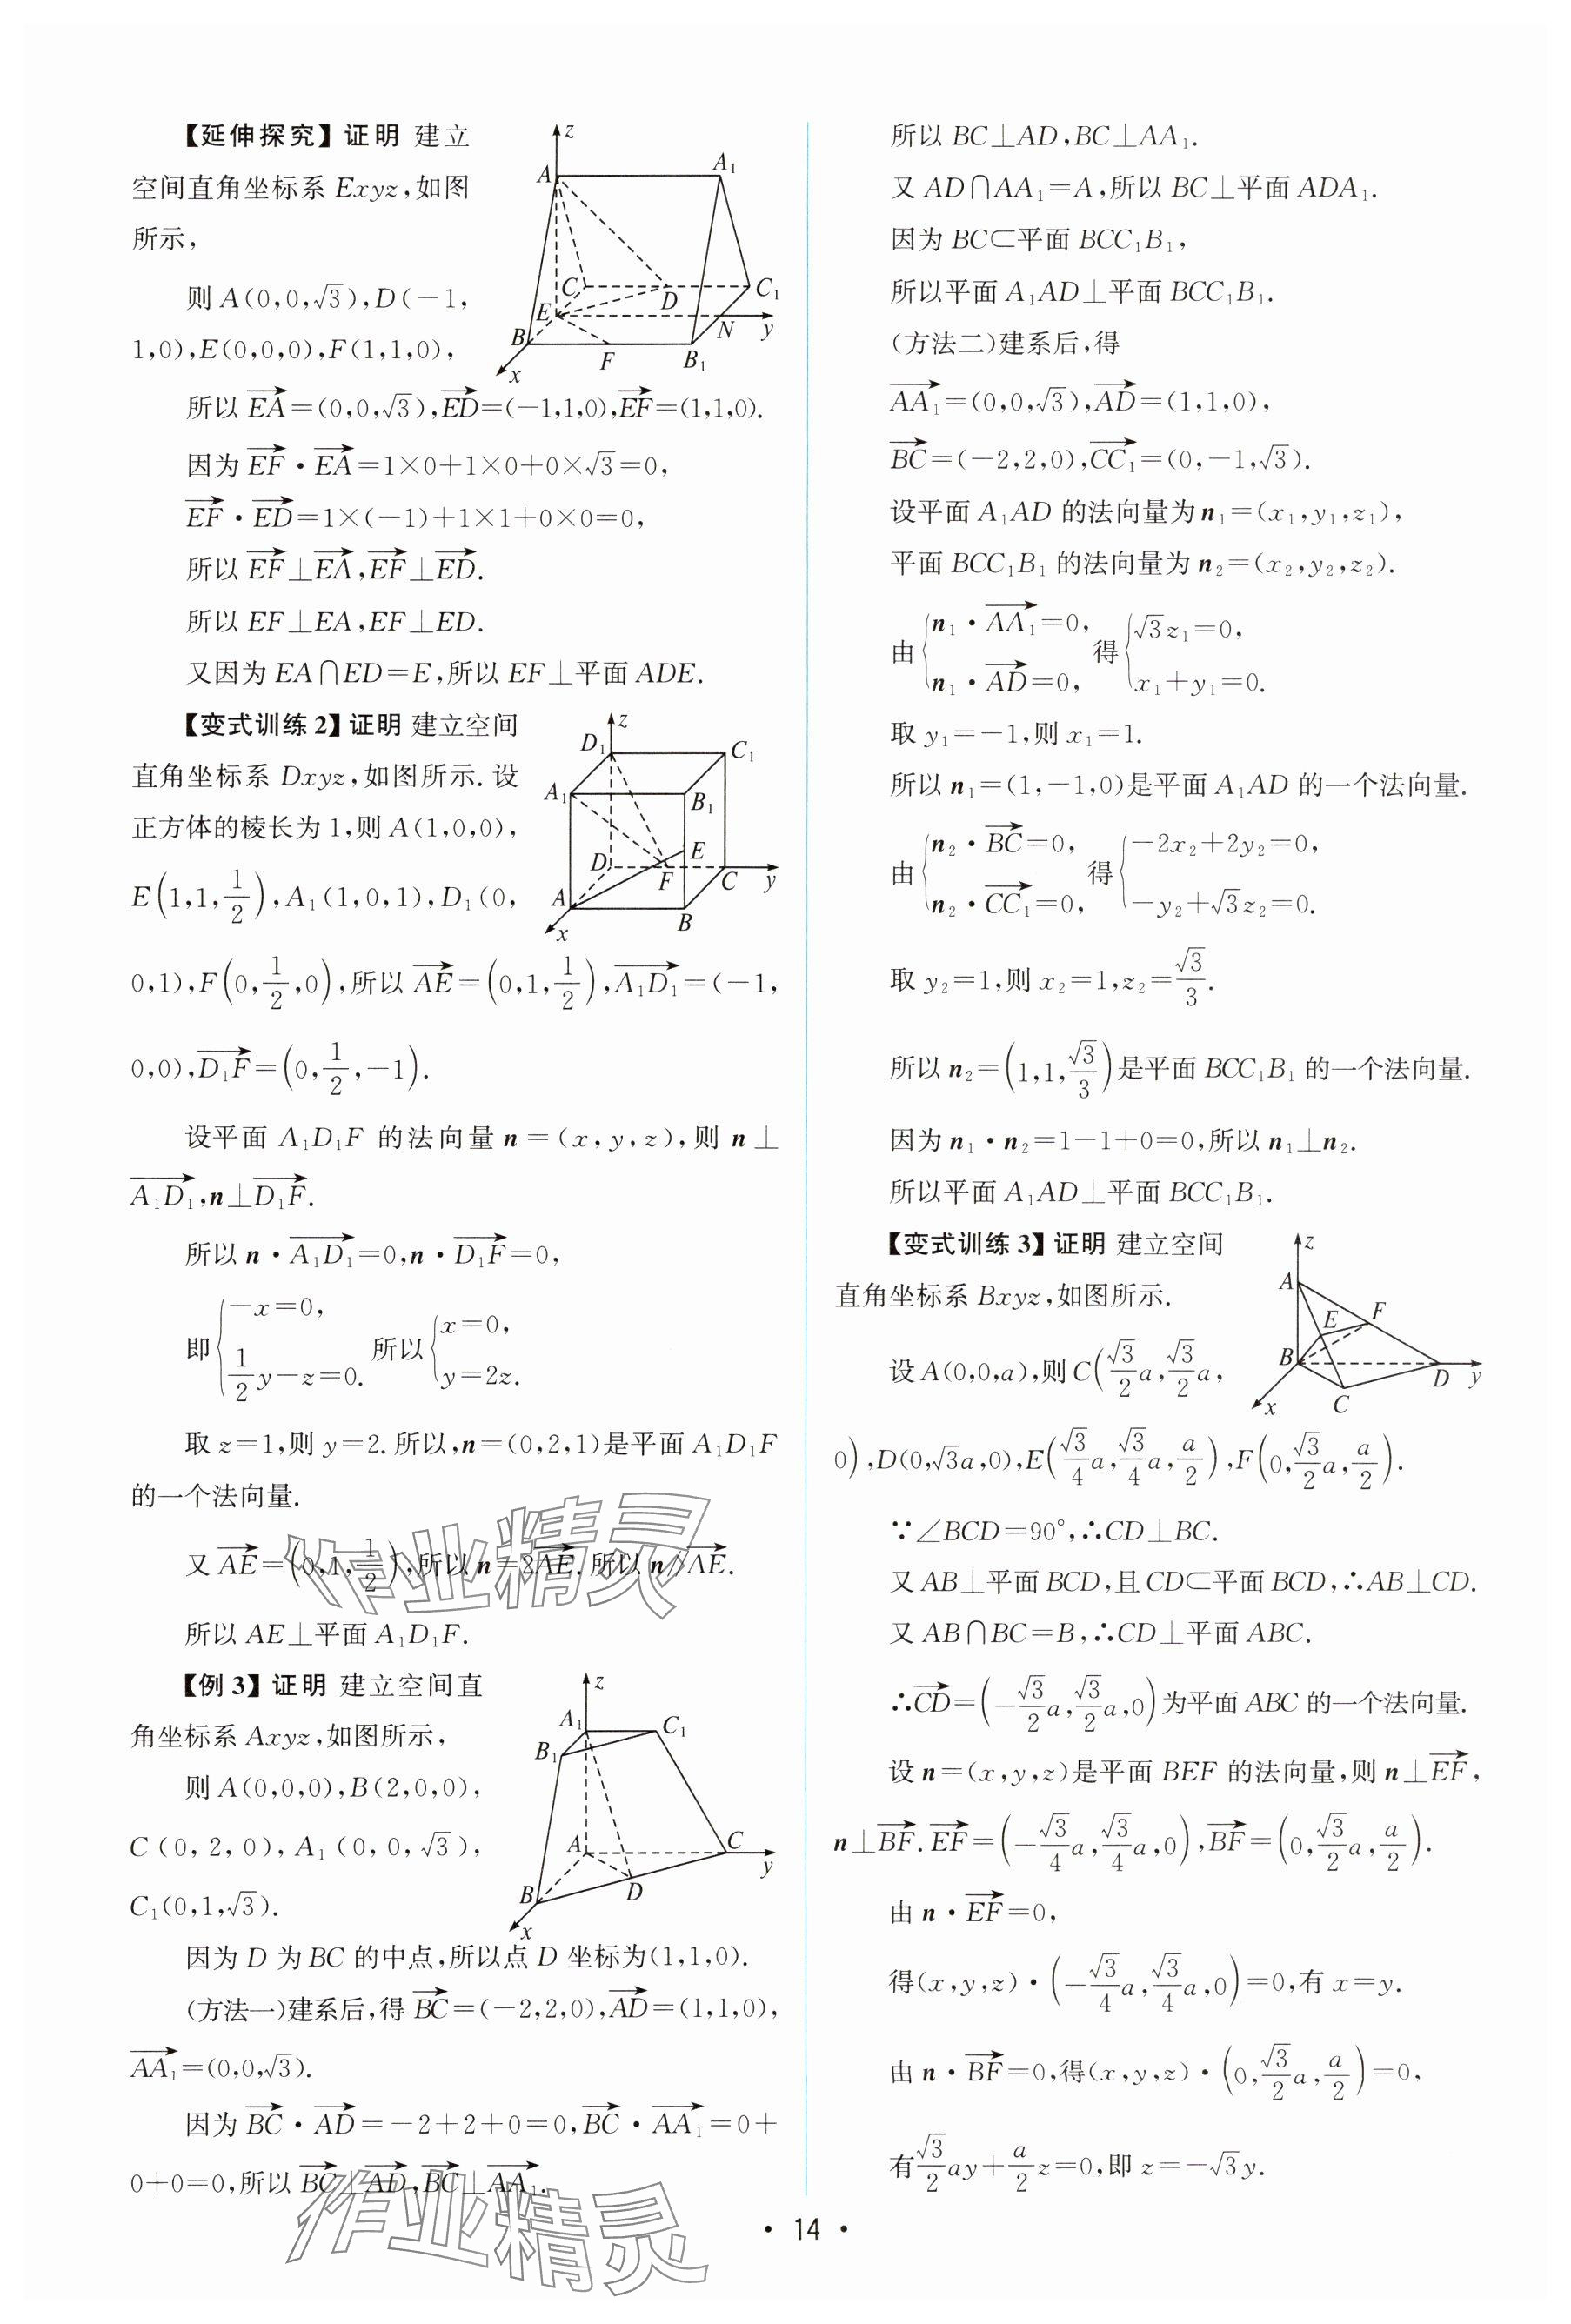 【延伸探究】证明 建立
空间直角坐标系 Exyz,如图
所示,
则 A(0,0,√3),D(-1,
1,0),E(0,0,0),F(1,1,0),
z
A
A₁
C
C₁
D
E
N
y
B
F
B₁
x
所以 $\overrightarrow{EA}$=(0,0,√3),$\overrightarrow{ED}$=(-1,1,0),$\overrightarrow{EF}$=(1,1,0).
因为 $\overrightarrow{EF}$·$\overrightarrow{EA}$=1×0+1×0+0×√3=0,
$\overrightarrow{EF}$·$\overrightarrow{ED}$=1×(-1)+1×1+0×0=0,
所以 $\overrightarrow{EF}$⊥$\overrightarrow{EA}$,$\overrightarrow{EF}$⊥$\overrightarrow{ED}$.
所以 EF⊥EA,EF⊥ED.
又因为 EA∩ED=E,所以 EF⊥平面 ADE.
【变式训练2】证明 建立空间
直角坐标系 Dxyz,如图所示.设
正方体的棱长为1,则 A(1,0,0),
E(1,1,$\frac{1}{2}$),A₁(1,0,1),D₁(0,
z
D₁
C₁
A₁
B₁
E
D
F
C
y
A
B
x
0,1),F(0,$\frac{1}{2}$,0),所以 $\overrightarrow{AE}$=(0,1,$\frac{1}{2}$),$\overrightarrow{A_1D_1}$=(-1,
0,0),$\overrightarrow{D_1F}$=(0,$\frac{1}{2}$,-1).
设平面 A₁D₁F 的法向量 n=(x,y,z),则 n⊥
$\overrightarrow{A_1D_1}$,n⊥$\overrightarrow{D_1F}$.
所以 n·$\overrightarrow{A_1D_1}$=0,n·$\overrightarrow{D_1F}$=0,
即 $\begin{cases}-x=0,\\ \frac{1}{2}y-z=0.\end{cases}$ 所以 $\begin{cases}x=0,\\ y=2z.\end{cases}$
取 z=1,则 y=2.所以,n=(0,2,1)是平面 A₁D₁F
的一个法向量.
又 $\overrightarrow{AE}$=(0,1,$\frac{1}{2}$),所以 n=2$\overrightarrow{AE}$.所以 n∥$\overrightarrow{AE}$.
作业精灵
所以 AE⊥平面 A₁D₁F.
【例3】证明 建立空间直
角坐标系 Axyz,如图所示,
则 A(0,0,0),B(2,0,0),
C(0,2,0),A₁(0,0,√3),
C₁(0,1,√3).
z
A₁
C₁
B₁
A
C
y
B
D
x
因为 D 为 BC 的中点,所以点 D 坐标为(1,1,0).
(方法一)建系后,得 $\overrightarrow{BC}$=(-2,2,0),$\overrightarrow{AD}$=(1,1,0),
$\overrightarrow{AA_1}$=(0,0,√3).
因为 $\overrightarrow{BC}$·$\overrightarrow{AD}$=-2+2+0=0,$\overrightarrow{BC}$·$\overrightarrow{AA_1}$=0+
0+0=0,所以 $\overrightarrow{BC}$⊥$\overrightarrow{AD}$,$\overrightarrow{BC}$⊥$\overrightarrow{AA_1}$.
作业精灵
所以 BC⊥AD,BC⊥AA₁.
又 AD∩AA₁=A,所以 BC⊥平面 ADA₁.
因为 BC⊂平面 BCC₁B₁,
所以平面 A₁AD⊥平面 BCC₁B₁.
(方法二)建系后,得
$\overrightarrow{AA_1}$=(0,0,√3),$\overrightarrow{AD}$=(1,1,0),
$\overrightarrow{BC}$=(-2,2,0),$\overrightarrow{CC_1}$=(0,-1,√3).
设平面 A₁AD 的法向量为 n₁=(x₁,y₁,z₁),
平面 BCC₁B₁ 的法向量为 n₂=(x₂,y₂,z₂).
由 $\begin{cases}n_1·\overrightarrow{AA_1}=0,\\ n_1·\overrightarrow{AD}=0,\end{cases}$ 得 $\begin{cases}\sqrt{3}z_1=0,\\ x_1+y_1=0.\end{cases}$
取 y₁=-1,则 x₁=1.
所以 n₁=(1,-1,0)是平面 A₁AD 的一个法向量.
由 $\begin{cases}n_2·\overrightarrow{BC}=0,\\ n_2·\overrightarrow{CC_1}=0,\end{cases}$ 得 $\begin{cases}-2x_2+2y_2=0,\\ -y_2+\sqrt{3}z_2=0.\end{cases}$
取 y₂=1,则 x₂=1,z₂=$\frac{\sqrt{3}}{3}$.
所以 n₂=(1,1,$\frac{\sqrt{3}}{3}$)是平面 BCC₁B₁ 的一个法向量.
因为 n₁·n₂=1-1+0=0,所以 n₁⊥n₂.
所以平面 A₁AD⊥平面 BCC₁B₁.
【变式训练3】证明 建立空间
直角坐标系 Bxyz,如图所示.
设 A(0,0,a),则 C($\frac{\sqrt{3}}{2}$a,$\frac{\sqrt{3}}{2}$a,
z
A
E
F
B
D
y
C
x
0),D(0,√3a,0),E($\frac{\sqrt{3}}{4}$a,$\frac{\sqrt{3}}{4}$a,$\frac{a}{2}$),F(0,$\frac{\sqrt{3}}{2}$a,$\frac{a}{2}$).
∵∠BCD=90°,∴CD⊥BC.
又 AB⊥平面 BCD,且 CD⊂平面 BCD,∴AB⊥CD.
又 AB∩BC=B,∴CD⊥平面 ABC.
∴$\overrightarrow{CD}$=(-$\frac{\sqrt{3}}{2}$a,$\frac{\sqrt{3}}{2}$a,0)为平面 ABC 的一个法向量.
设 n=(x,y,z)是平面 BEF 的法向量,则 n⊥$\overrightarrow{EF}$,
n⊥$\overrightarrow{BF}$.$\overrightarrow{EF}$=(-$\frac{\sqrt{3}}{4}$a,$\frac{\sqrt{3}}{4}$a,0),$\overrightarrow{BF}$=(0,$\frac{\sqrt{3}}{2}$a,$\frac{a}{2}$).
由 n·$\overrightarrow{EF}$=0,
得(x,y,z)·(-$\frac{\sqrt{3}}{4}$a,$\frac{\sqrt{3}}{4}$a,0)=0,有 x=y.
由 n·$\overrightarrow{BF}$=0,得(x,y,z)·(0,$\frac{\sqrt{3}}{2}$a,$\frac{a}{2}$)=0,
有$\frac{\sqrt{3}}{2}$ay+$\frac{a}{2}$z=0,即 z=-√3y.
· 14 ·